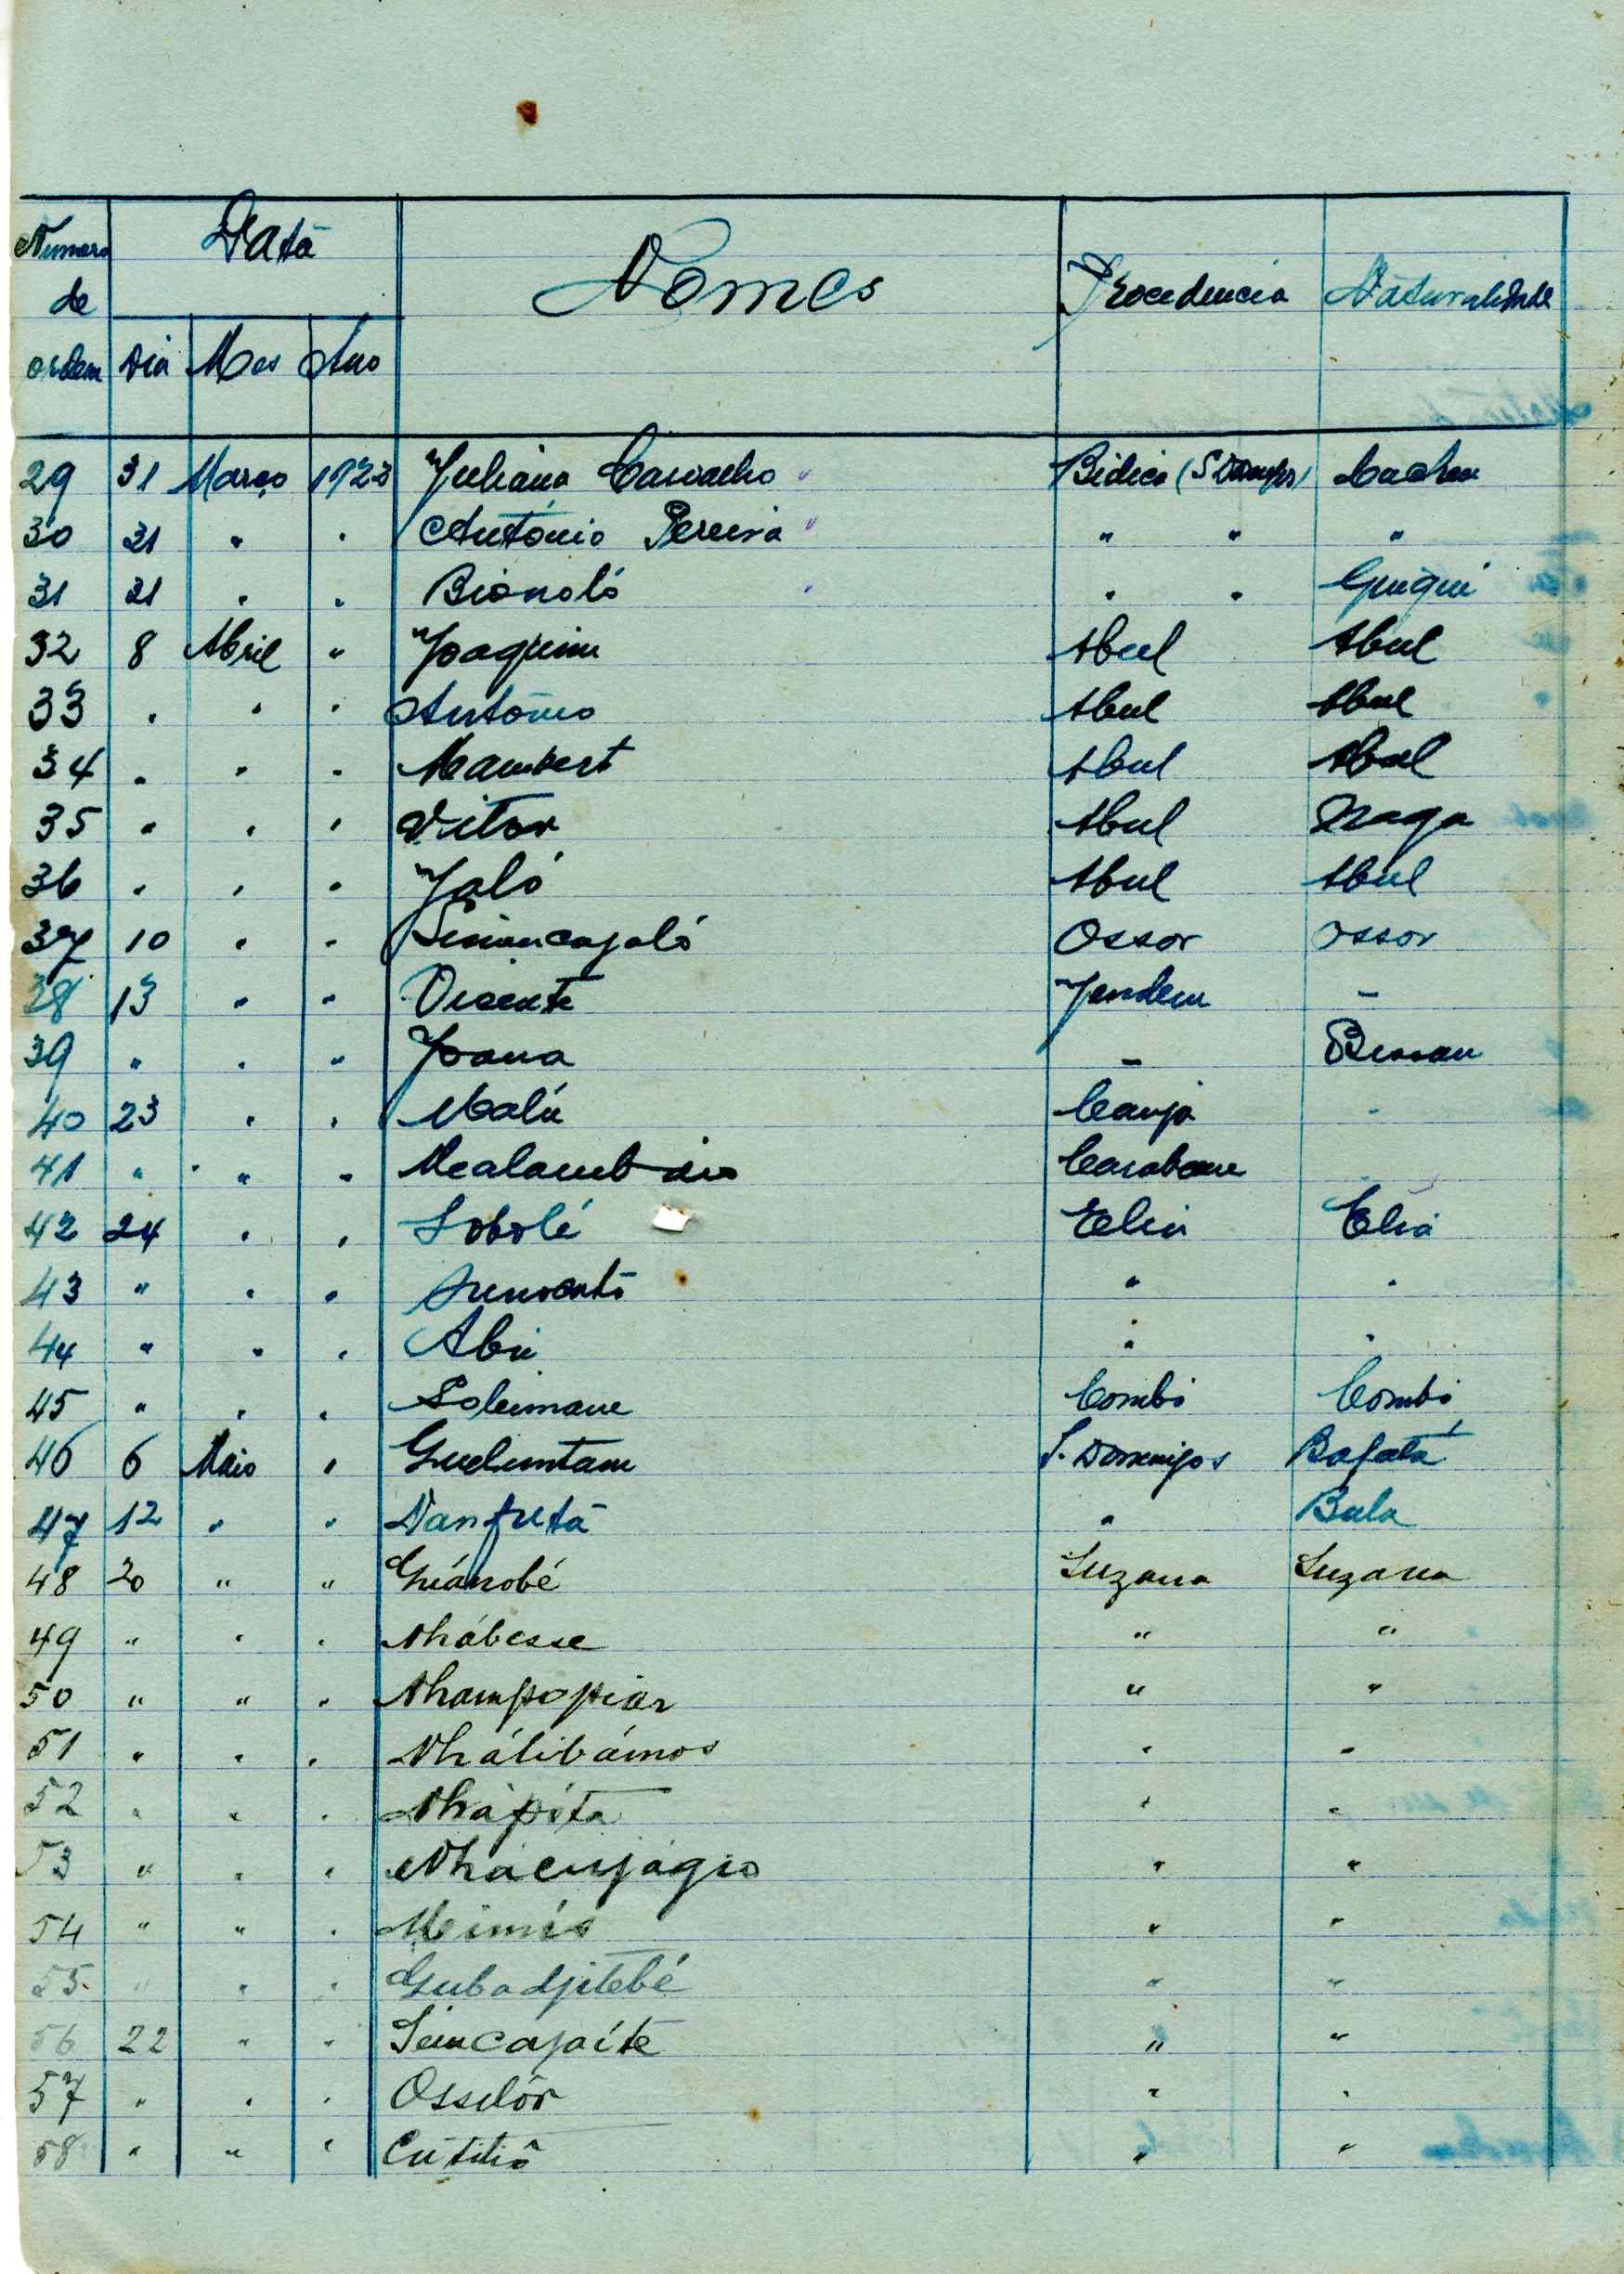 Numero de ordem Data Nomes Procedencia Naturalidade
Dia Mes Ano
29 31 Março 1923 Juliana Carvalho Bidico (S Domingos) Cacheu
30 31 " " António Pereira " " "
31 31 " " Bianoló " " Guigui
32 8 Abril " Joaquim Abul Abul
33 " " " António Abul Abul
34 " " " Mambert Abul Abul
35 " " " Vitor Abul Naga
36 " " " Jaló Abul Abul
37 10 " " Ossor Ossor
38 13 " " Vicente Jendem -
39 " " " Joana - Bissau
40 23 " " Malú Canja -
41 " " " Carabane
42 24 " " Sobolé Elia Elia
43 " " " " "
44 " " " Abú " "
45 " " " Soleimane Combi Combi
46 6 Maio " Gueluntam S. Domingos Bafatá
47 12 " " Nanfutá " Bula
48 20 " " Guiánobé Suzana Suzana
49 " " " Nhábesse " "
50 " " " Nhampopiar " "
51 " " " Nhálibámos " "
52 " " " Nhápóta " "
53 " " " Nhácujágio " "
54 " " " " "
55 " " " Gubadjitebé " "
56 22 " " " "
57 " " " Osselôr " "
58 " " " Cutitiô " "